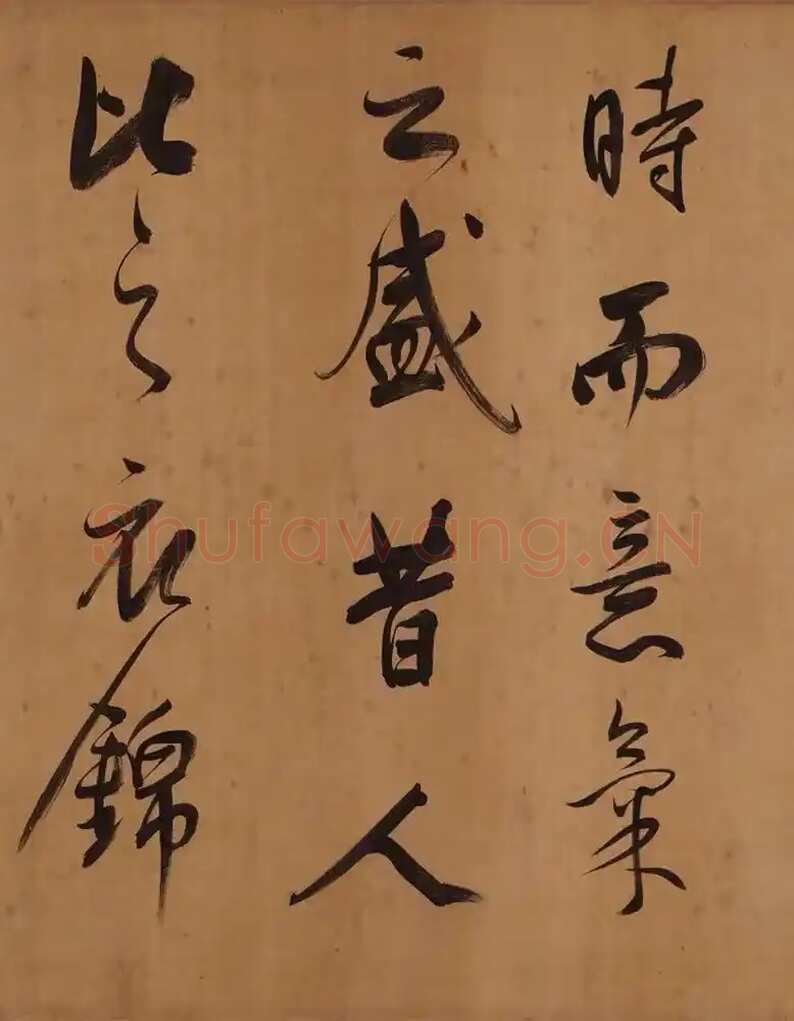 時而意氣
之盛昔人
比之衣錦
Shufawang.CN